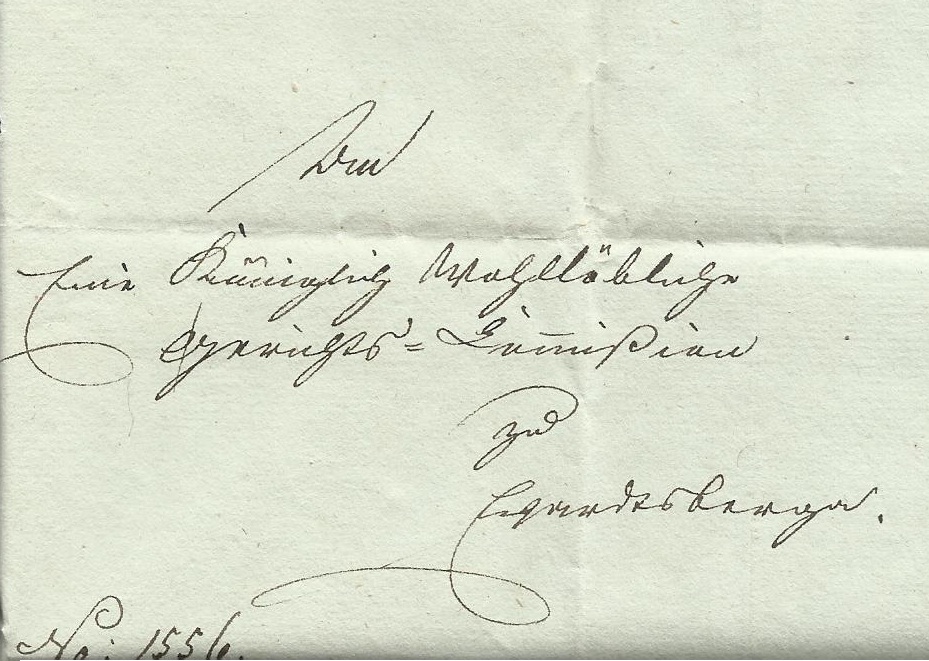 An
Eine Königlich Wohllöbliche
Gerichts=Com̅ißion
zu
Eckardtsberga.
No: 1556.